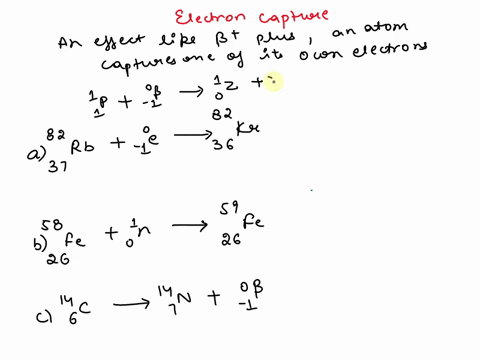 Electron capture
An effect like β+ plus, an atom
captures one of its own electrons
¹₁p + ⁰₋₁β → ¹₀Z +
a) ⁸²₃₇Rb + ⁰₋₁e → ⁸²₃₆Kr
b) ⁵⁸₂₆Fe + ¹₀n → ⁵⁹₂₆Fe
c) ¹⁴₆C → ¹⁴₇N + ⁰₋₁β